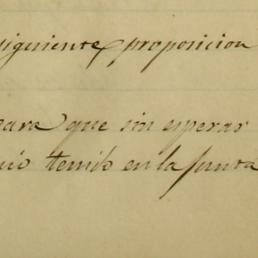 siguiente proposicion
para que sin esperar
tenido en la junta